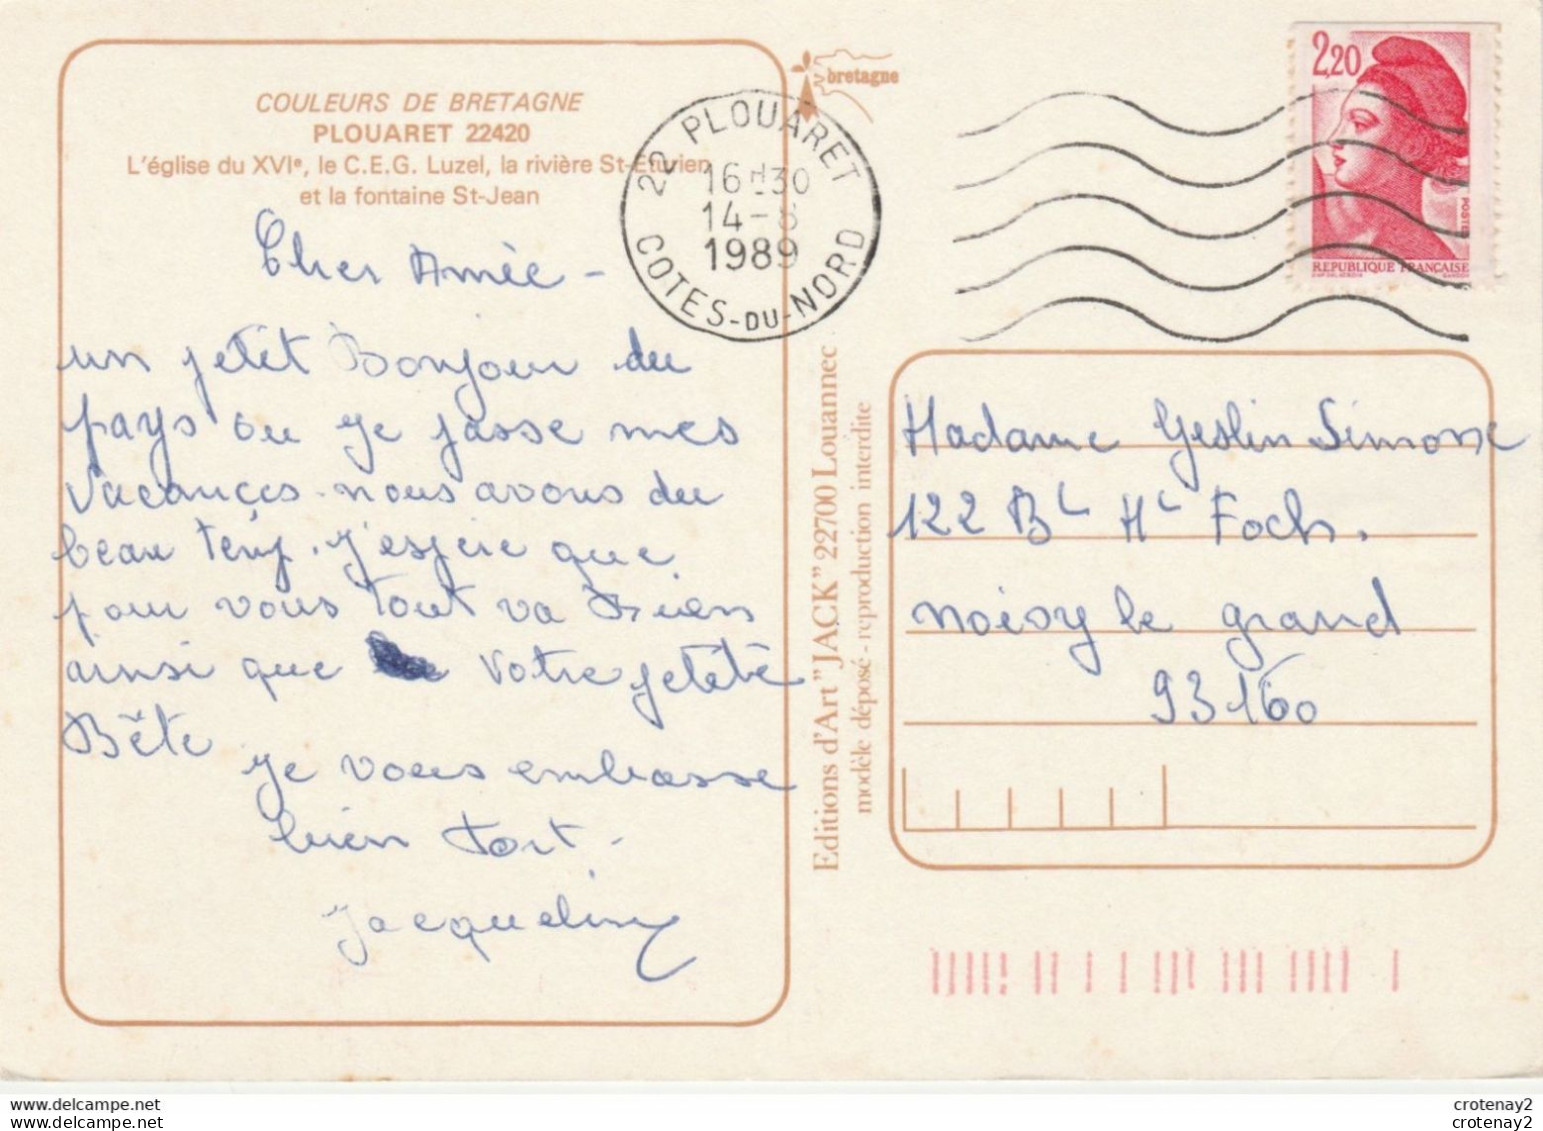 COULEURS DE BRETAGNE
PLOUARET 22420
L'église du XVIe, le C.E.G. Luzel, la rivière St-Eturien
et la fontaine St-Jean
Cher Amèe -
un petit Bonjour du
pays ou je passe mes
vacances. nous avons du
beau temp. j'espère que
pour vous tout va bien
ainsi que votre petete
Bête je vous embrasse
bien fort -
Jacqueline
bretagne
22 PLOUARET
16H30
14-8
1989
COTES-DU-NORD
2,20
POSTES
REPUBLIQUE FRANÇAISE
Editions d'Art "JACK" 22700 Louannec
modèle déposé - reproduction interdite
Madame Geslin Simone
122 BL ML Foch.
noisy le grand
93160
crotenay2
crotenay2
crotenay2
crotenay2